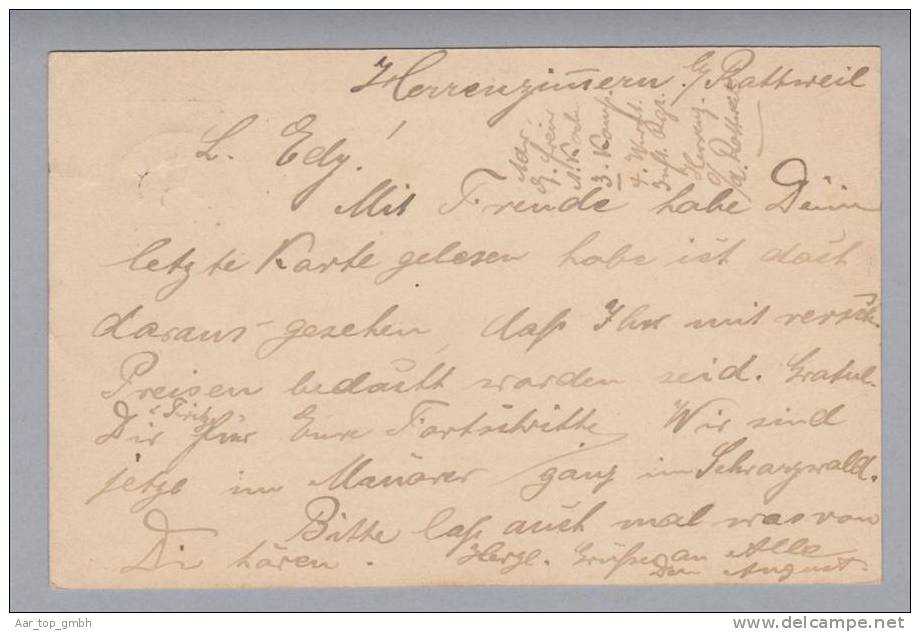 Herrenzimmern b/ Rottweil
L. Edy!
Adr.
3. Komp.
4. Württ.
Inft. Rgt.
Herrenz.
a. Rottweil
Mit Freude habe Dein
letzte Karte gelesen habe ist doch
daraus gesehen, daß Ihr mit versch.
Preisen bedacht worden seid. Gratul.
Dir u. Fritz für Eure Fortschritte Wir sind
jetzt im Manöver ganz im Schwarzwald.
Bitte laß auch mal was von
Dir hören. Herzl. Grüße an Alle
Dein August
Aar_top_gmbh
www.delcampe.net